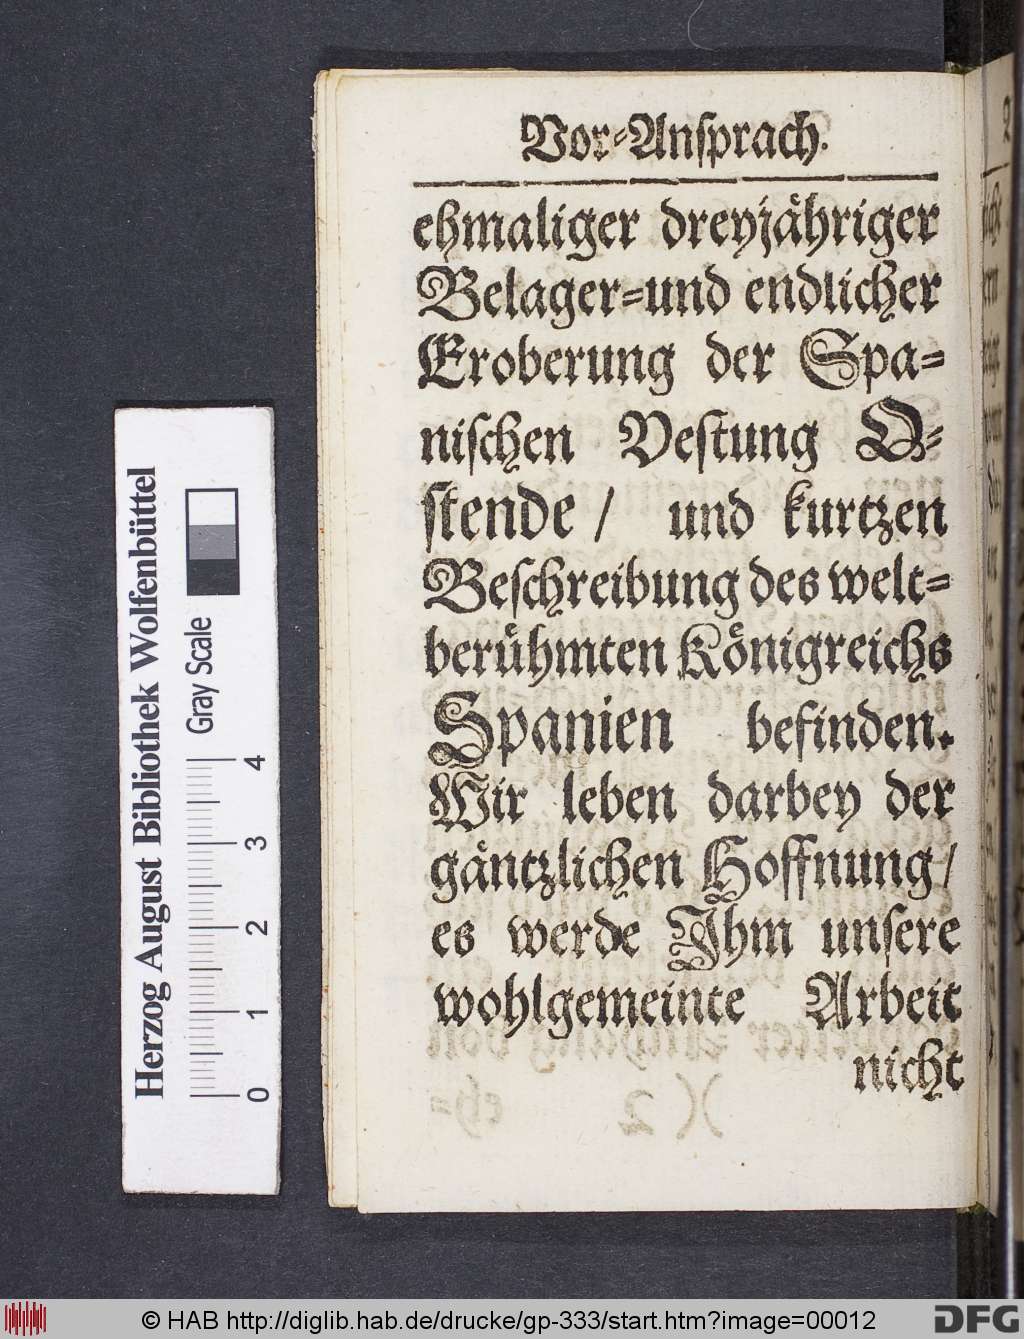 Vor-Ansprach.
ehmaliger dreyjåhriger
Belager-und endlicher
Eroberung der Spa-
nischen Vestung O-
stende / und kurtzen
Beschreibung des welt-
berůhmten Kőnigreichs
Spanien befinden.
Wir leben darbey der
gåntzlichen Hoffnung /
es werde Ihm unsere
wohlgemeinte Arbeit
nicht
Herzog August Bibliothek Wolfenbüttel
Gray Scale
0 1 2 3 4
© HAB http://diglib.hab.de/drucke/gp-333/start.htm?image=00012
DFG